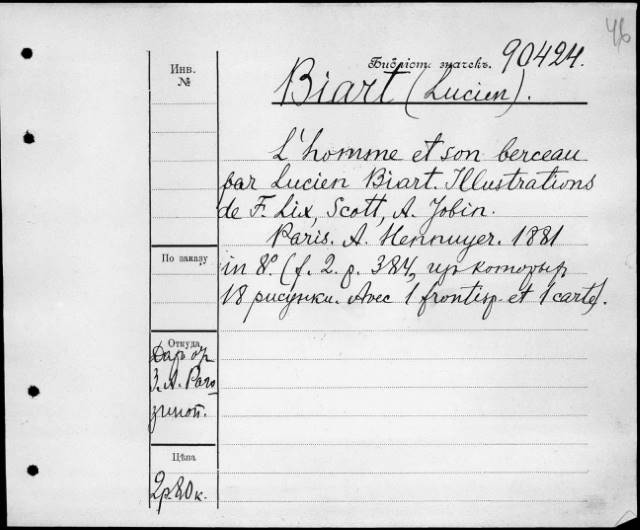 46
Библіот. значекъ. 90424.
Инв.
№
Biart (Lucien).
L'homme et son berceau
par Lucien Biart. Illustrations
de F. Lix, Scott, A. Jobin.
Paris. A. Hennuyer. 1881
in 8º. (f. 2. p. 384, изъ которыхъ
18 рисунки. Avec 1 frontisp. et 1 carte).
По заказу
Откуда
Даръ отъ
З. А. Раго
зиной.
Цѣна
2р.80к.